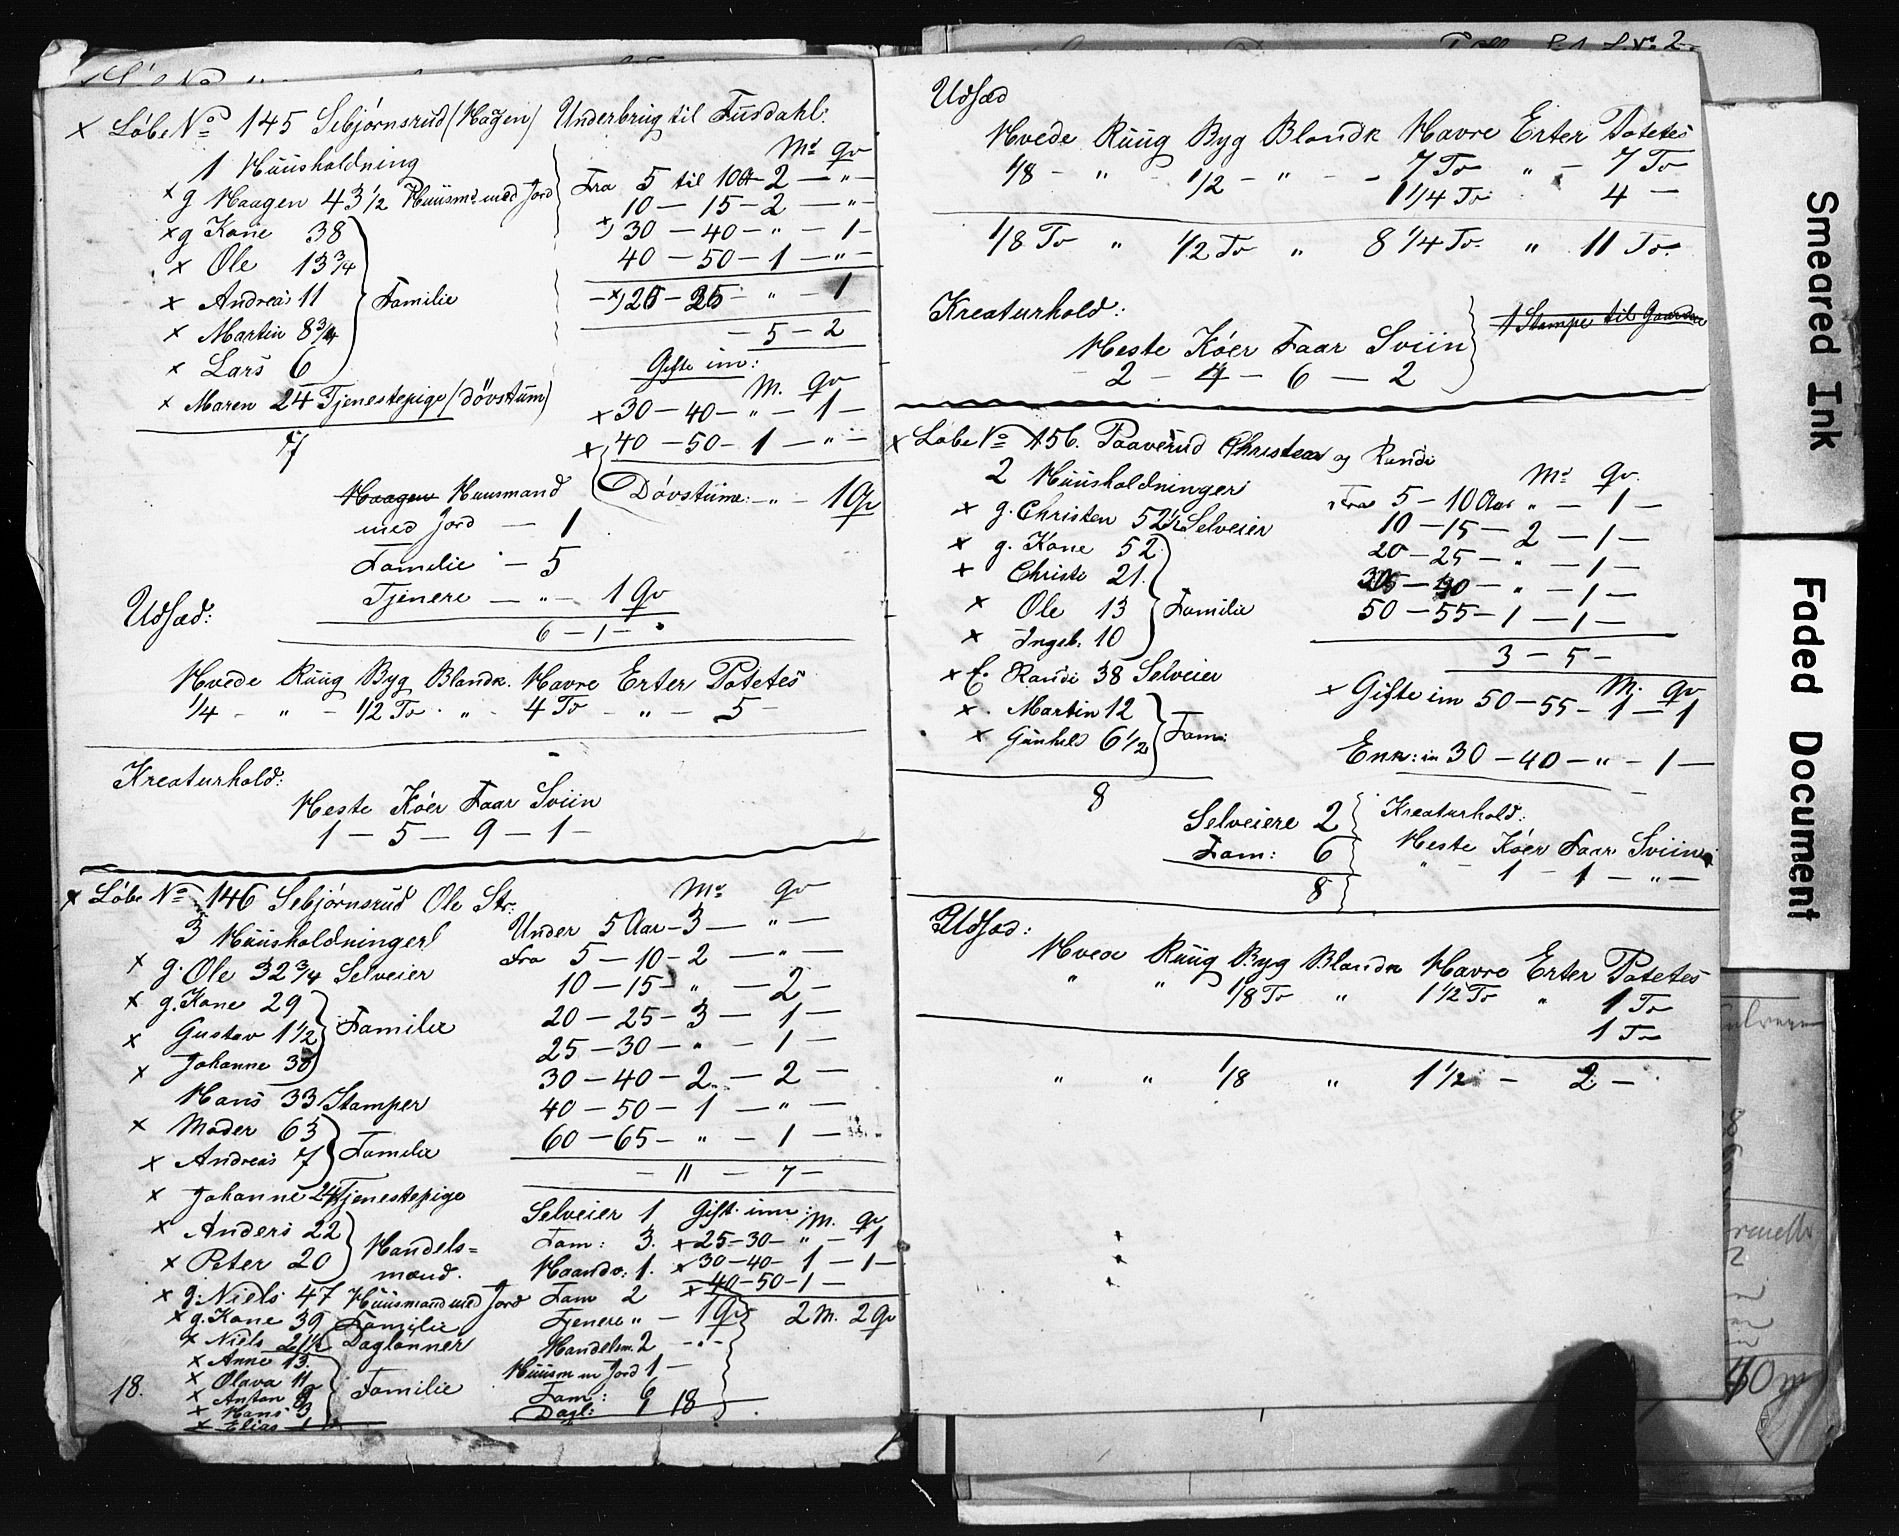 x Löbe No 145 Sebjörnsrud (Haagen) Underbrug til Fusdahl:
1 Huusholdning
x g Haagen 43 1/2 Huusmd med Jord
x g Kone 38
x Ole 13 3/4
x Andreas 11
x Martin 8 3/4
x Lars 6
Familie
x Maren 24 Tjenestepige (dövstum)
7
Md Qv
Fra 5 til 10 – 2 – " –
10 – 15 – 2 – " –
x) 30 – 40 – " – 1 –
40 – 50 – 1 – " –
– x) 25 – " – 1
– 5 – 2
Gifte im:
M. Qv
x 30 – 40 – " – 1 –
x 40 – 50 – 1 – " –
Dövstüme: – " – 1 Qv
Haagen Huusmand
med Jord – 1
Familie – 5
Tjenere – " – 1 Qv
6 – 1 –
Udsæd:
Hvede Ruug Byg Blandk. Havre Erter Potetes
1/4 – " – 1/2 To – " – 4 To – " – 5 –
Kreaturhold:
Heste Köer Faar Sviin
1 – 5 – 9 – 1 –
x Löbe No 146 Sebjörnsrud Ole Str:
3 Huusholdninger
x g. Ole 32 3/4 Selveier
x g. Kone 29
x Gustav 1 1/2
x Johanne 30
Familie
Hans 33 Stamper
x Moder 63
x Andreas 7
Familie
x Johanne 24 Tjenestepige
x Anders 22
x Peter 20
Handels=
mænd.
x g. Niels 47 Huusmand med Jord
x g. Kone 39 Familie
x Niels 21 1/2 Daglönner
x Anne 13
x Olava 11
x Anton
x Hans 3
x Elias 1
Familie
18.
Md Qv
Under 5 Aar – 3 – " –
Fra 5 – 10 – 2 – " –
10 – 15 – " – 2 –
20 – 25 – 3 – 1 –
25 – 30 – " – 1 –
30 – 40 – 2 – 2 –
40 – 50 – 1 – " –
60 – 65 – " – 1 –
– 11 – 7 –
Selveier 1 Gift. inn:
M. Qv
Fam: 3. x 25 – 30 – " – 1
Haandv: 1. x 30 – 40 – 1 – 1 –
Fam 2 x 40 – 50 – 1 –
Tjenere " – 1 Qv 2 M. 2 Qv
Handelsm. 2 – " –
Huusm m Jord 1 –
Fam: 6
Dagl: 1 18
Udsæd
Hvede Ruug Byg Blandk Havre Erter Potetes
1/8 – " – 1/2 – " – 7 To " – 7 To
1 1/4 To 4 –
1/8 To " 1/2 To " 8 1/4 To " 11 To
Kreaturhold:
Heste Köer Faar Sviin
2 – 4 – 6 – 2
1 Stampe til Gaarden
x Löbe No 156. Paaverud Christen og Randi
2 Huusholdninger
x g. Christen 52 1/2 Selveier
x g. Kone 52
x Christi 21.
x Ole 13
x Ingeb. 10
Familie
x E. Randi 38 Selveier
x Martin 12
x Gunhild 6 1/2
Fam:
8
Md Qv.
Fra 5 – 10 Aar " – 1 –
10 – 15 – 2 – 1 –
20 – 25 – " – 1 –
– " – 1 –
50 – 55 – 1 – 1 –
3 – 5 –
M. Qv
x Gifte im 50 – 55 – 1 – 1
Enk: in 30 – 40 – " – 1 –
Selveiere 2
Fam: 6
8
Kreaturhold:
Heste Köer Faar Sviin
" – 1 – 1 – " –
Udsæd:
Hvede Ruug Byg Blandk Havre Erter Potetes
" " 1/8 To " 1 1/2 To " 1 To
1 To
" " 1/8 " 1 1/2 – 2 –
Smeared Ink
Faded Document